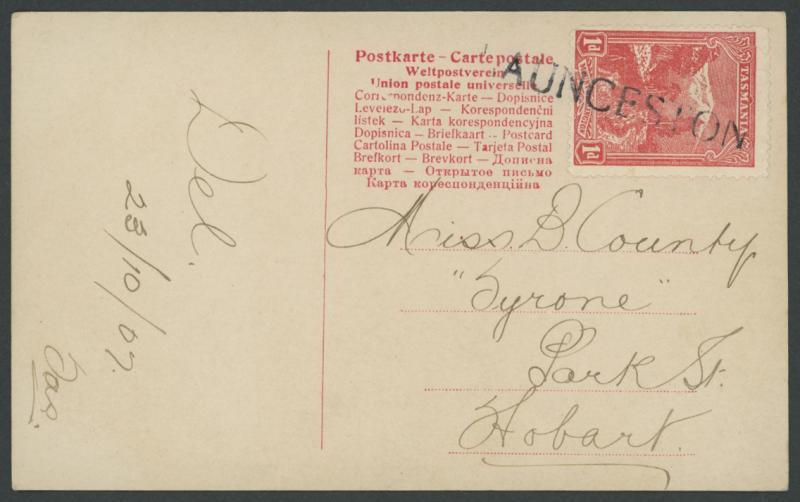 Postkarte – Carte postale
Weltpostverein
Union postale universelle
Correspondenz-Karte — Dopisnice
Levelezo-Lap — Korespondenční
lístek — Karta korespondencyjna
Dopisnica — Briefkaart — Postcard
Cartolina Postale — Tarjeta Postal
Brefkort — Brevkort — Дописна
карта — Открытое письмо
Карта кореспонденційна
1d
TASMANIA
1d
LAUNCESTON
Del.
23/10/07.
Tas.
Miss. B. County
"Tyrone"
Park St.
Hobart.